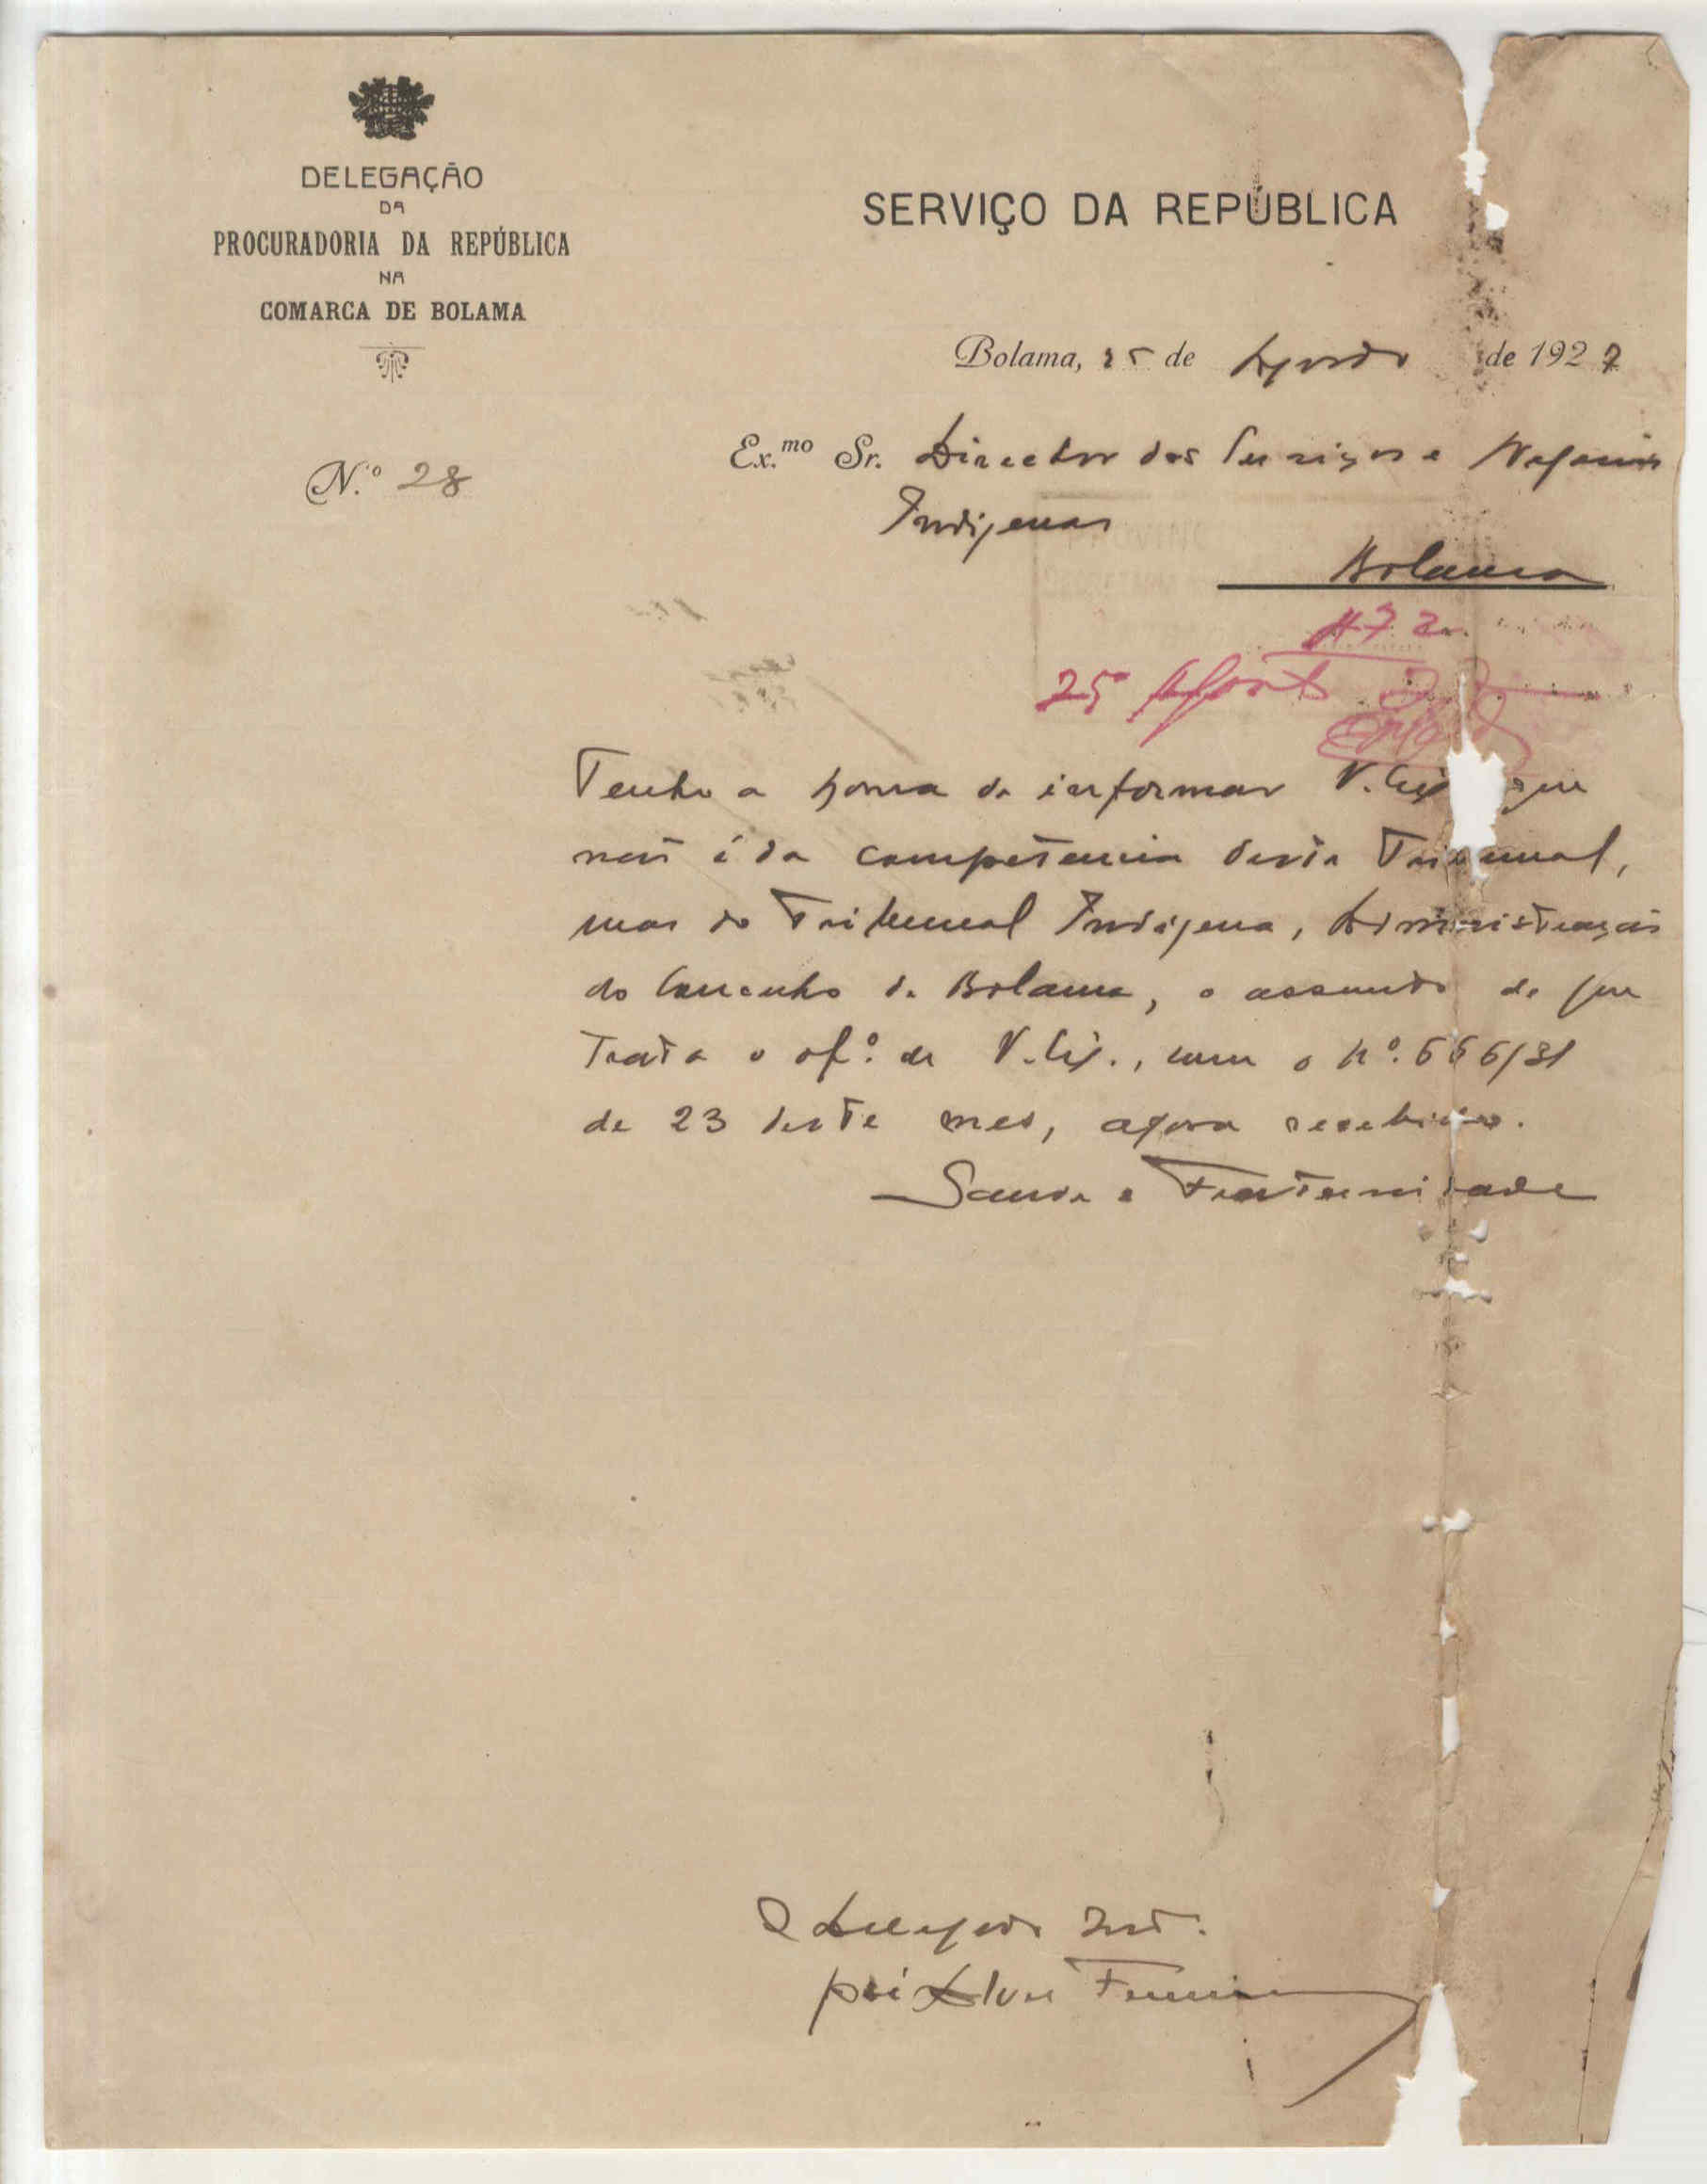 DELEGAÇÃO
DA
PROCURADORIA DA REPÚBLICA
NA
COMARCA DE BOLAMA
SERVIÇO DA REPÚBLICA
Bolama, 25 de Agosto de 1927
N.º 28
Ex.mo Sr. Director dos Serviços e Negocios
Indigenas
Bolama
25 Agosto 27
Tenho a honra de informar V. Exª que
não é da competencia deste Tribunal,
mas do Tribunal Indigena, Administração
do Concelho de Bolama, o assunto de que
trata o of.º de V. Exª., com o nº. 666/31
de 23 deste mes, agora recebido.
Saude e Fraternidade
O Delegado Int.
José Alves Ferreira